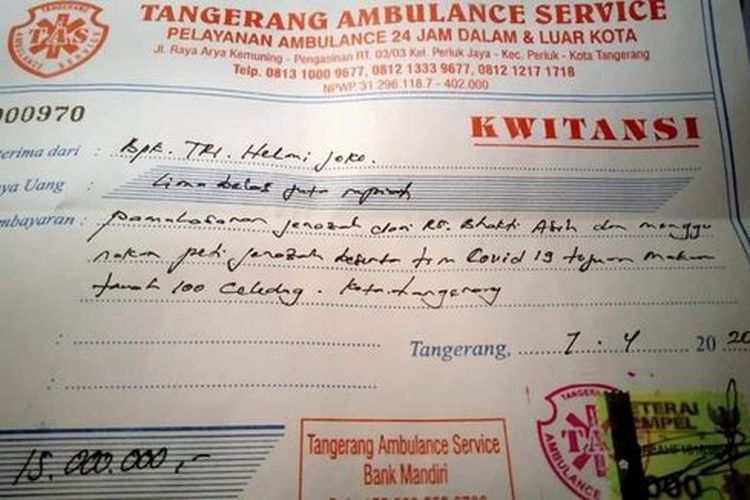 TANGERANG AMBULANCE SERVICE
PELAYANAN AMBULANCE 24 JAM DALAM & LUAR KOTA
Jl. Raya Arya Kemuning - Pengasinan RT. 03/03 Kel. Periuk Jaya - Kec. Periuk - Kota Tangerang
Telp. 0813 1000 9677, 0812 1333 9677, 0812 1217 1718
NPWP 31.296.118.7 - 402.000
TAS
000970
KWITANSI
erima dari : Bpk. TRI. Helmi Joko.
ya Uang : Lima belas juta rupiah
mbayaran : Pamakasaran jenazah dari RS. Bhakti Asih dan menggu
nakan peti jenazah beserta tim Covid 19 tujuan makam
tanah 100 Celedug. Kota tangerang
Tangerang, 7 . 4 2020
15.000.000,-
Tangerang Ambulance Service
Bank Mandiri
TANGERA
TA
AMBULANCE
ETERAI
EMPEL
000